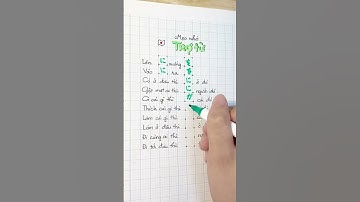 Mẹo nhớ
Trợ từ
Lên に, xuống を
Vào に, ra を
Có ở đâu thì に ở đó
Gặp một ai thì に người đó
Có cái gì thì が cái đó
Thích cái gì thì
Làm cái gì thì
Làm ở đâu thì
Đi cùng ai thì
Đi tới đâu thì